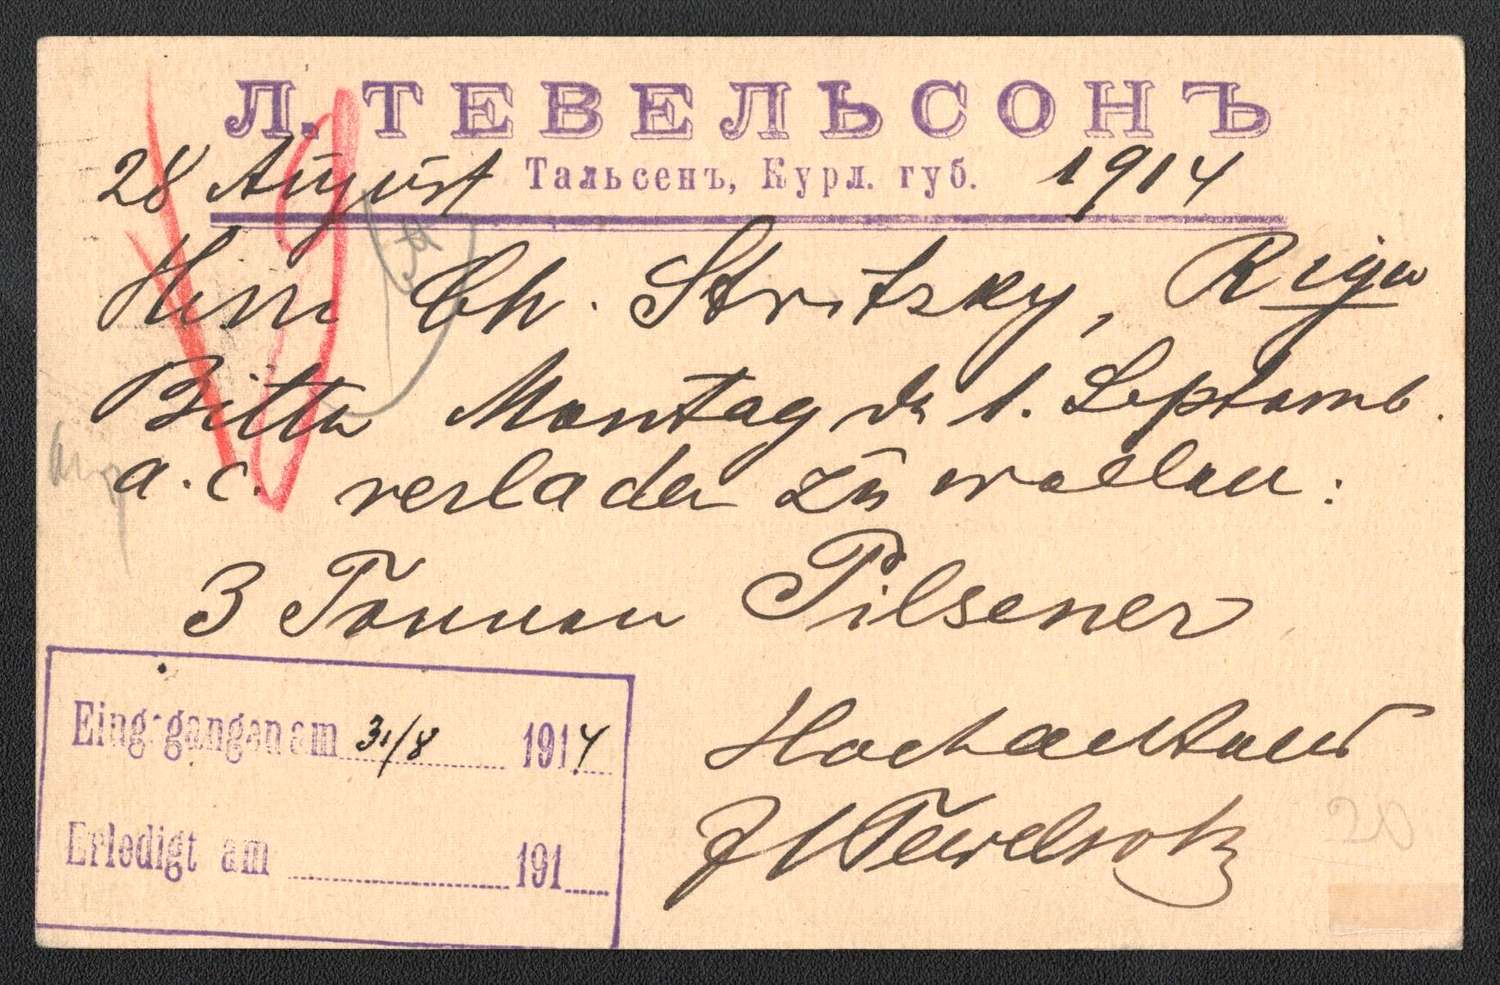 Л. ТЕВЕЛЬСОНЪ
28 August Тальсенъ, Курл. губ. 1914
Herrn Ch. Stritzky, Riga
Bitte Montag den 1. Septemb.
a. c. verladen zu wollen:
3 Tonnen Pilsener
Hochachtend
Tewelsohn
Eingegangen am 31/8 1914
Erledigt am 191
20